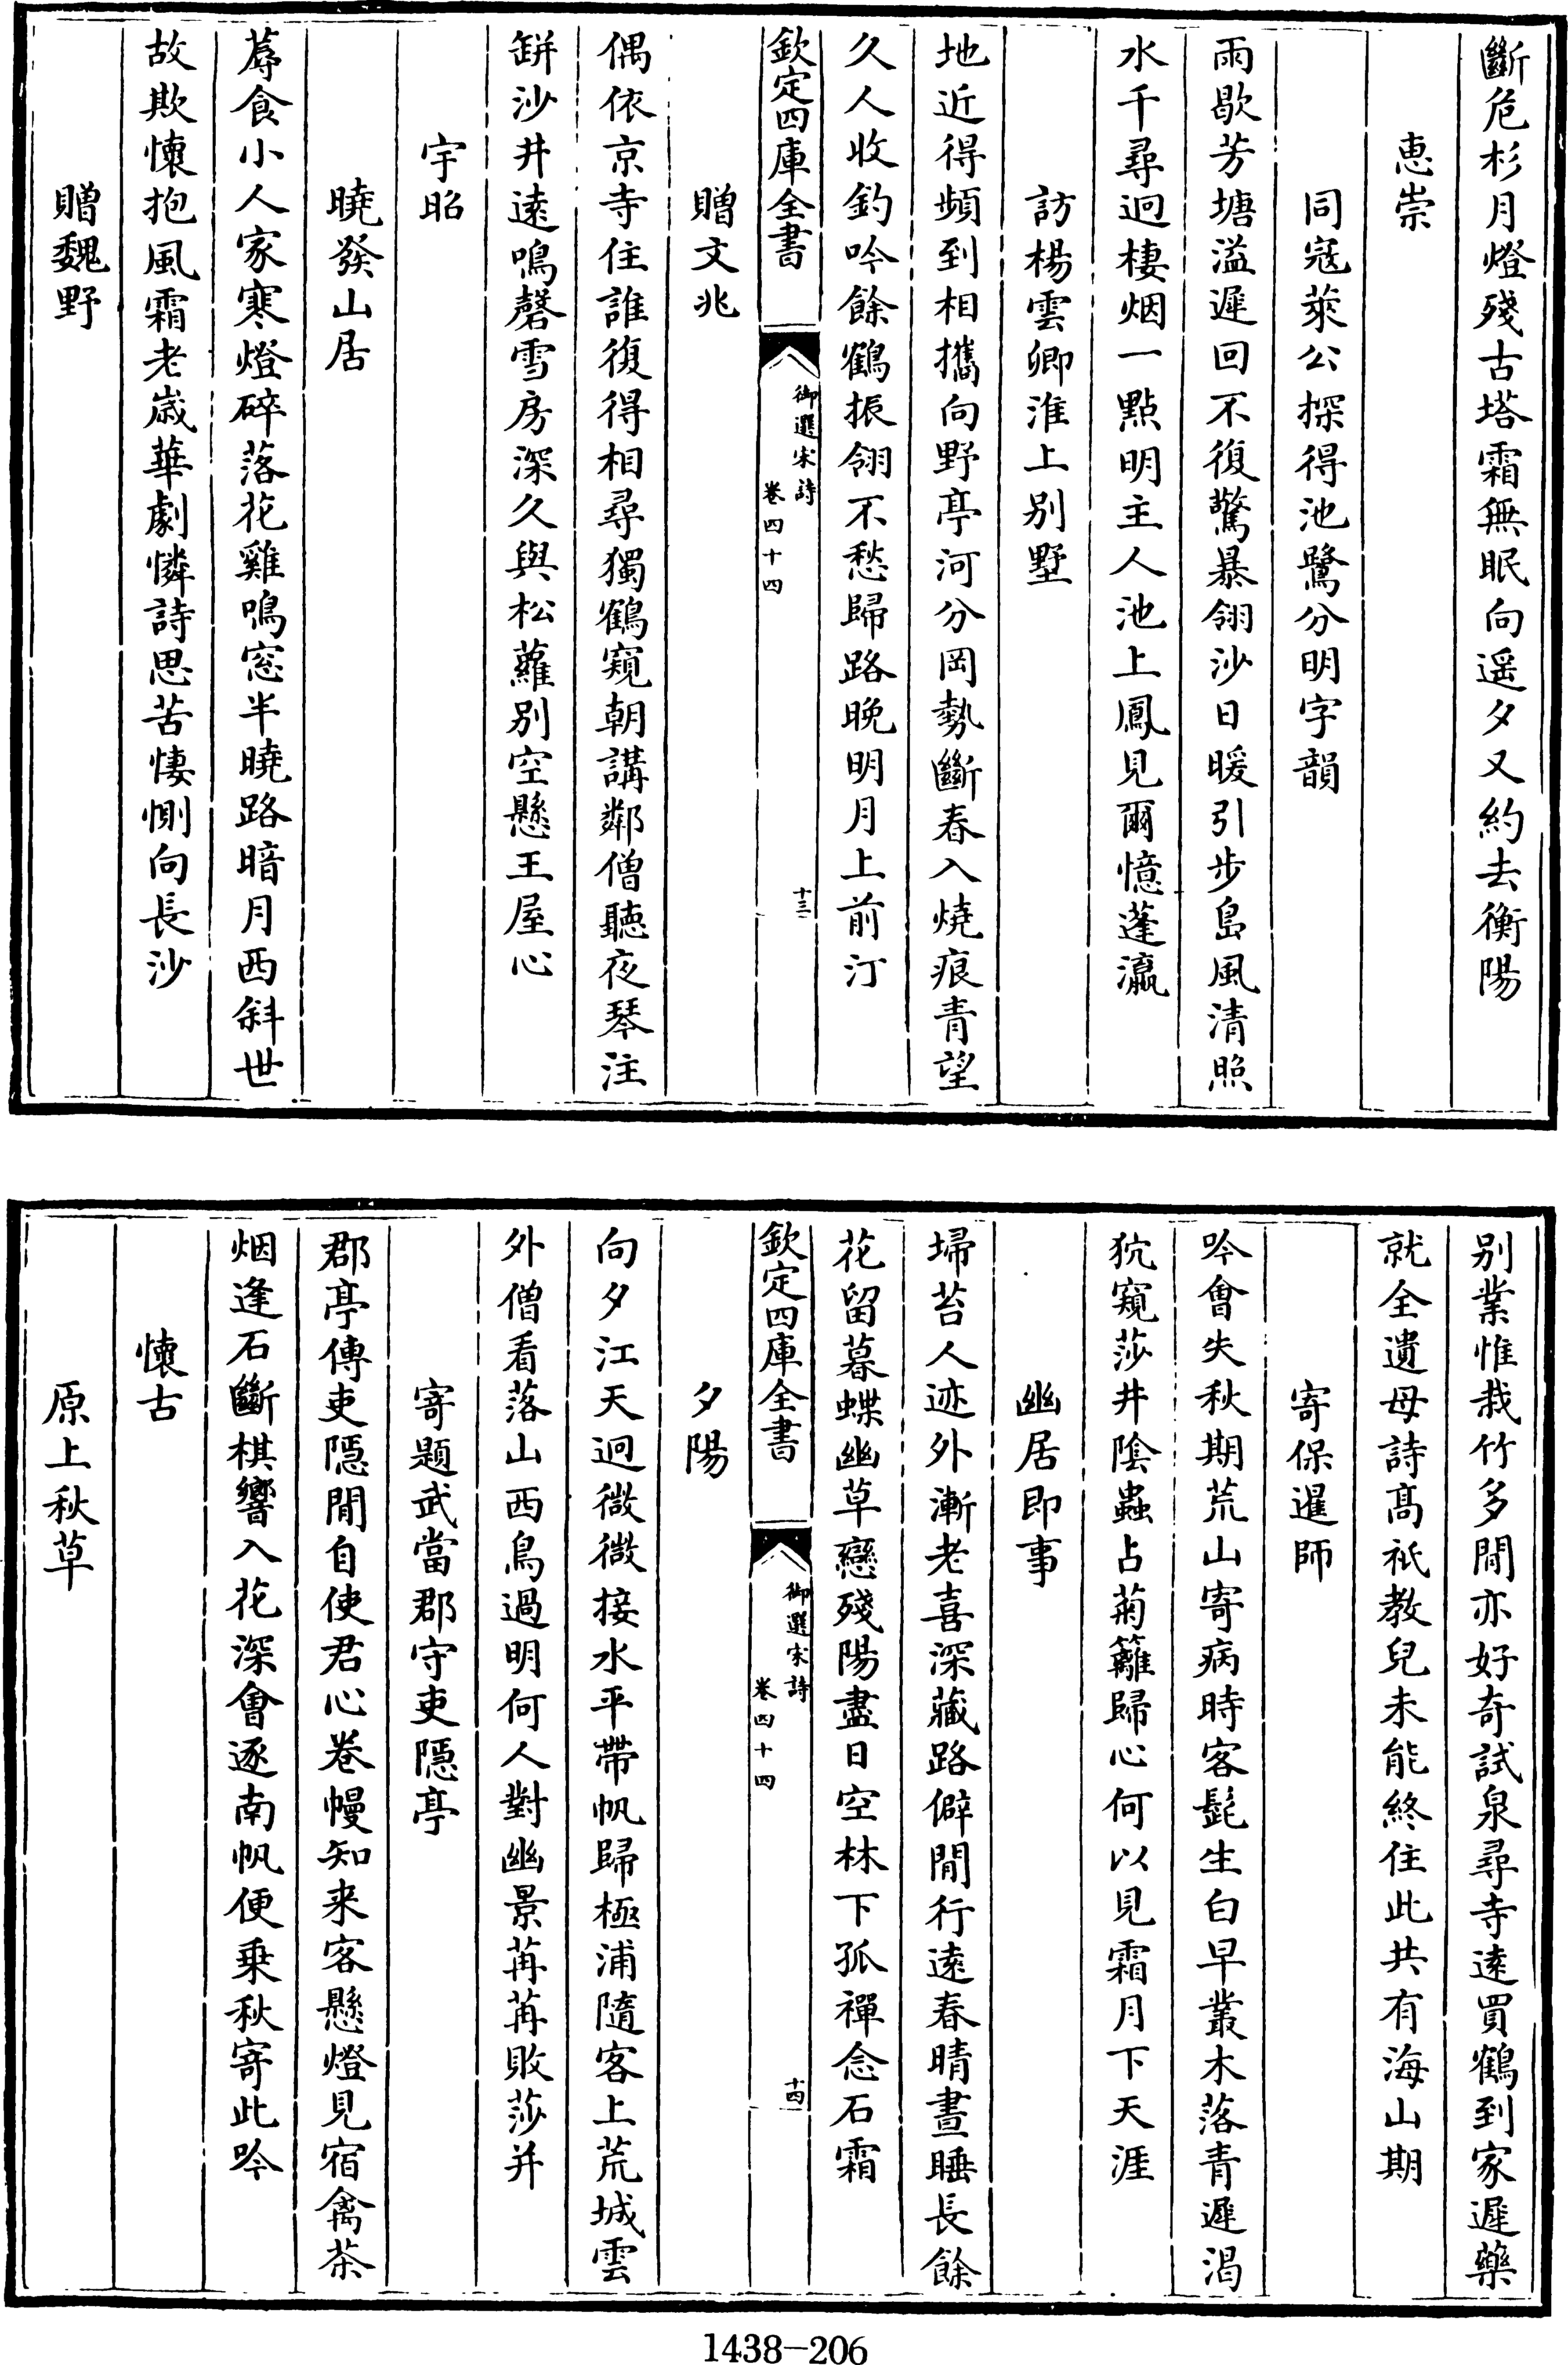 斷危杉月燈殘古塔霜無眠向遥夕又約去衡陽
惠崇
同寇萊公探得池鷺分明字韻
雨歇芳塘溢遲回不復驚暴翎沙日暖引步島風清照
水千尋迥棲烟一點明主人池上鳳見爾憶蓬瀛
訪楊雲卿淮上别墅
地近得頻到相攜向野亭河分岡勢斷春入燒痕青望
久人收釣吟餘鶴振翎不愁歸路晚明月上前汀
欽定四庫全書
御選宋詩
卷四十四
十三
贈文兆
偶依京寺住誰復得相尋獨鶴窺朝講鄰僧聽夜琴注
缾沙井遠鳴磬雪房深久與松蘿别空懸王屋心
宇昭
曉發山居
蓐食小人家寒燈碎落花雞鳴窓半曉路暗月西斜世
故欺懷抱風霜老歲華劇憐詩思苦悽惻向長沙
贈魏野
别業惟栽竹多閒亦好奇試泉尋寺遠買鶴到家遲藥
就全遺母詩髙祇教兒未能終住此共有海山期
寄保暹師
吟會失秋期荒山寄病時客髭生白早叢木落青遲渴
狖窺莎井陰蟲占菊籬歸心何以見霜月下天涯
幽居即事
埽苔人迹外漸老喜深藏路僻閒行遠春晴晝睡長餘
花留暮蝶幽草戀殘陽盡日空林下孤禪念石霜
欽定四庫全書
御選宋詩
卷四十四
十四
夕陽
向夕江天迥微微接水平帶帆歸極浦隨客上荒城雲
外僧看落山西鳥過明何人對幽景苒苒敗莎并
寄題武當郡守吏隱亭
郡亭傳吏隱閒自使君心卷幔知来客懸燈見宿禽茶
烟逢石斷棋響入花深會逐南帆便乗秋寄此吟
懷古
原上秋草
1438-206